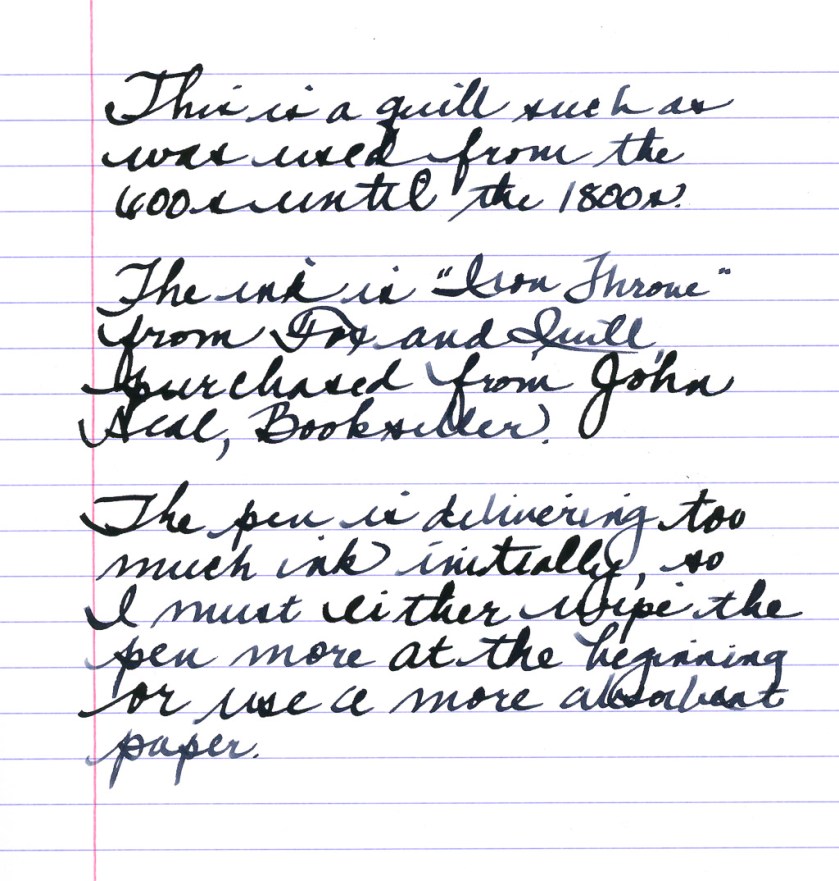 This is a quill such as
was used from the
600s until the 1800s.
The ink is "Iron Throne"
from Fox and Quill,
purchased from John
Neal, Bookseller.
The pen is delivering too
much ink initially, so
I must either wipe the
pen more at the beginning
or use a more absorbant
paper.